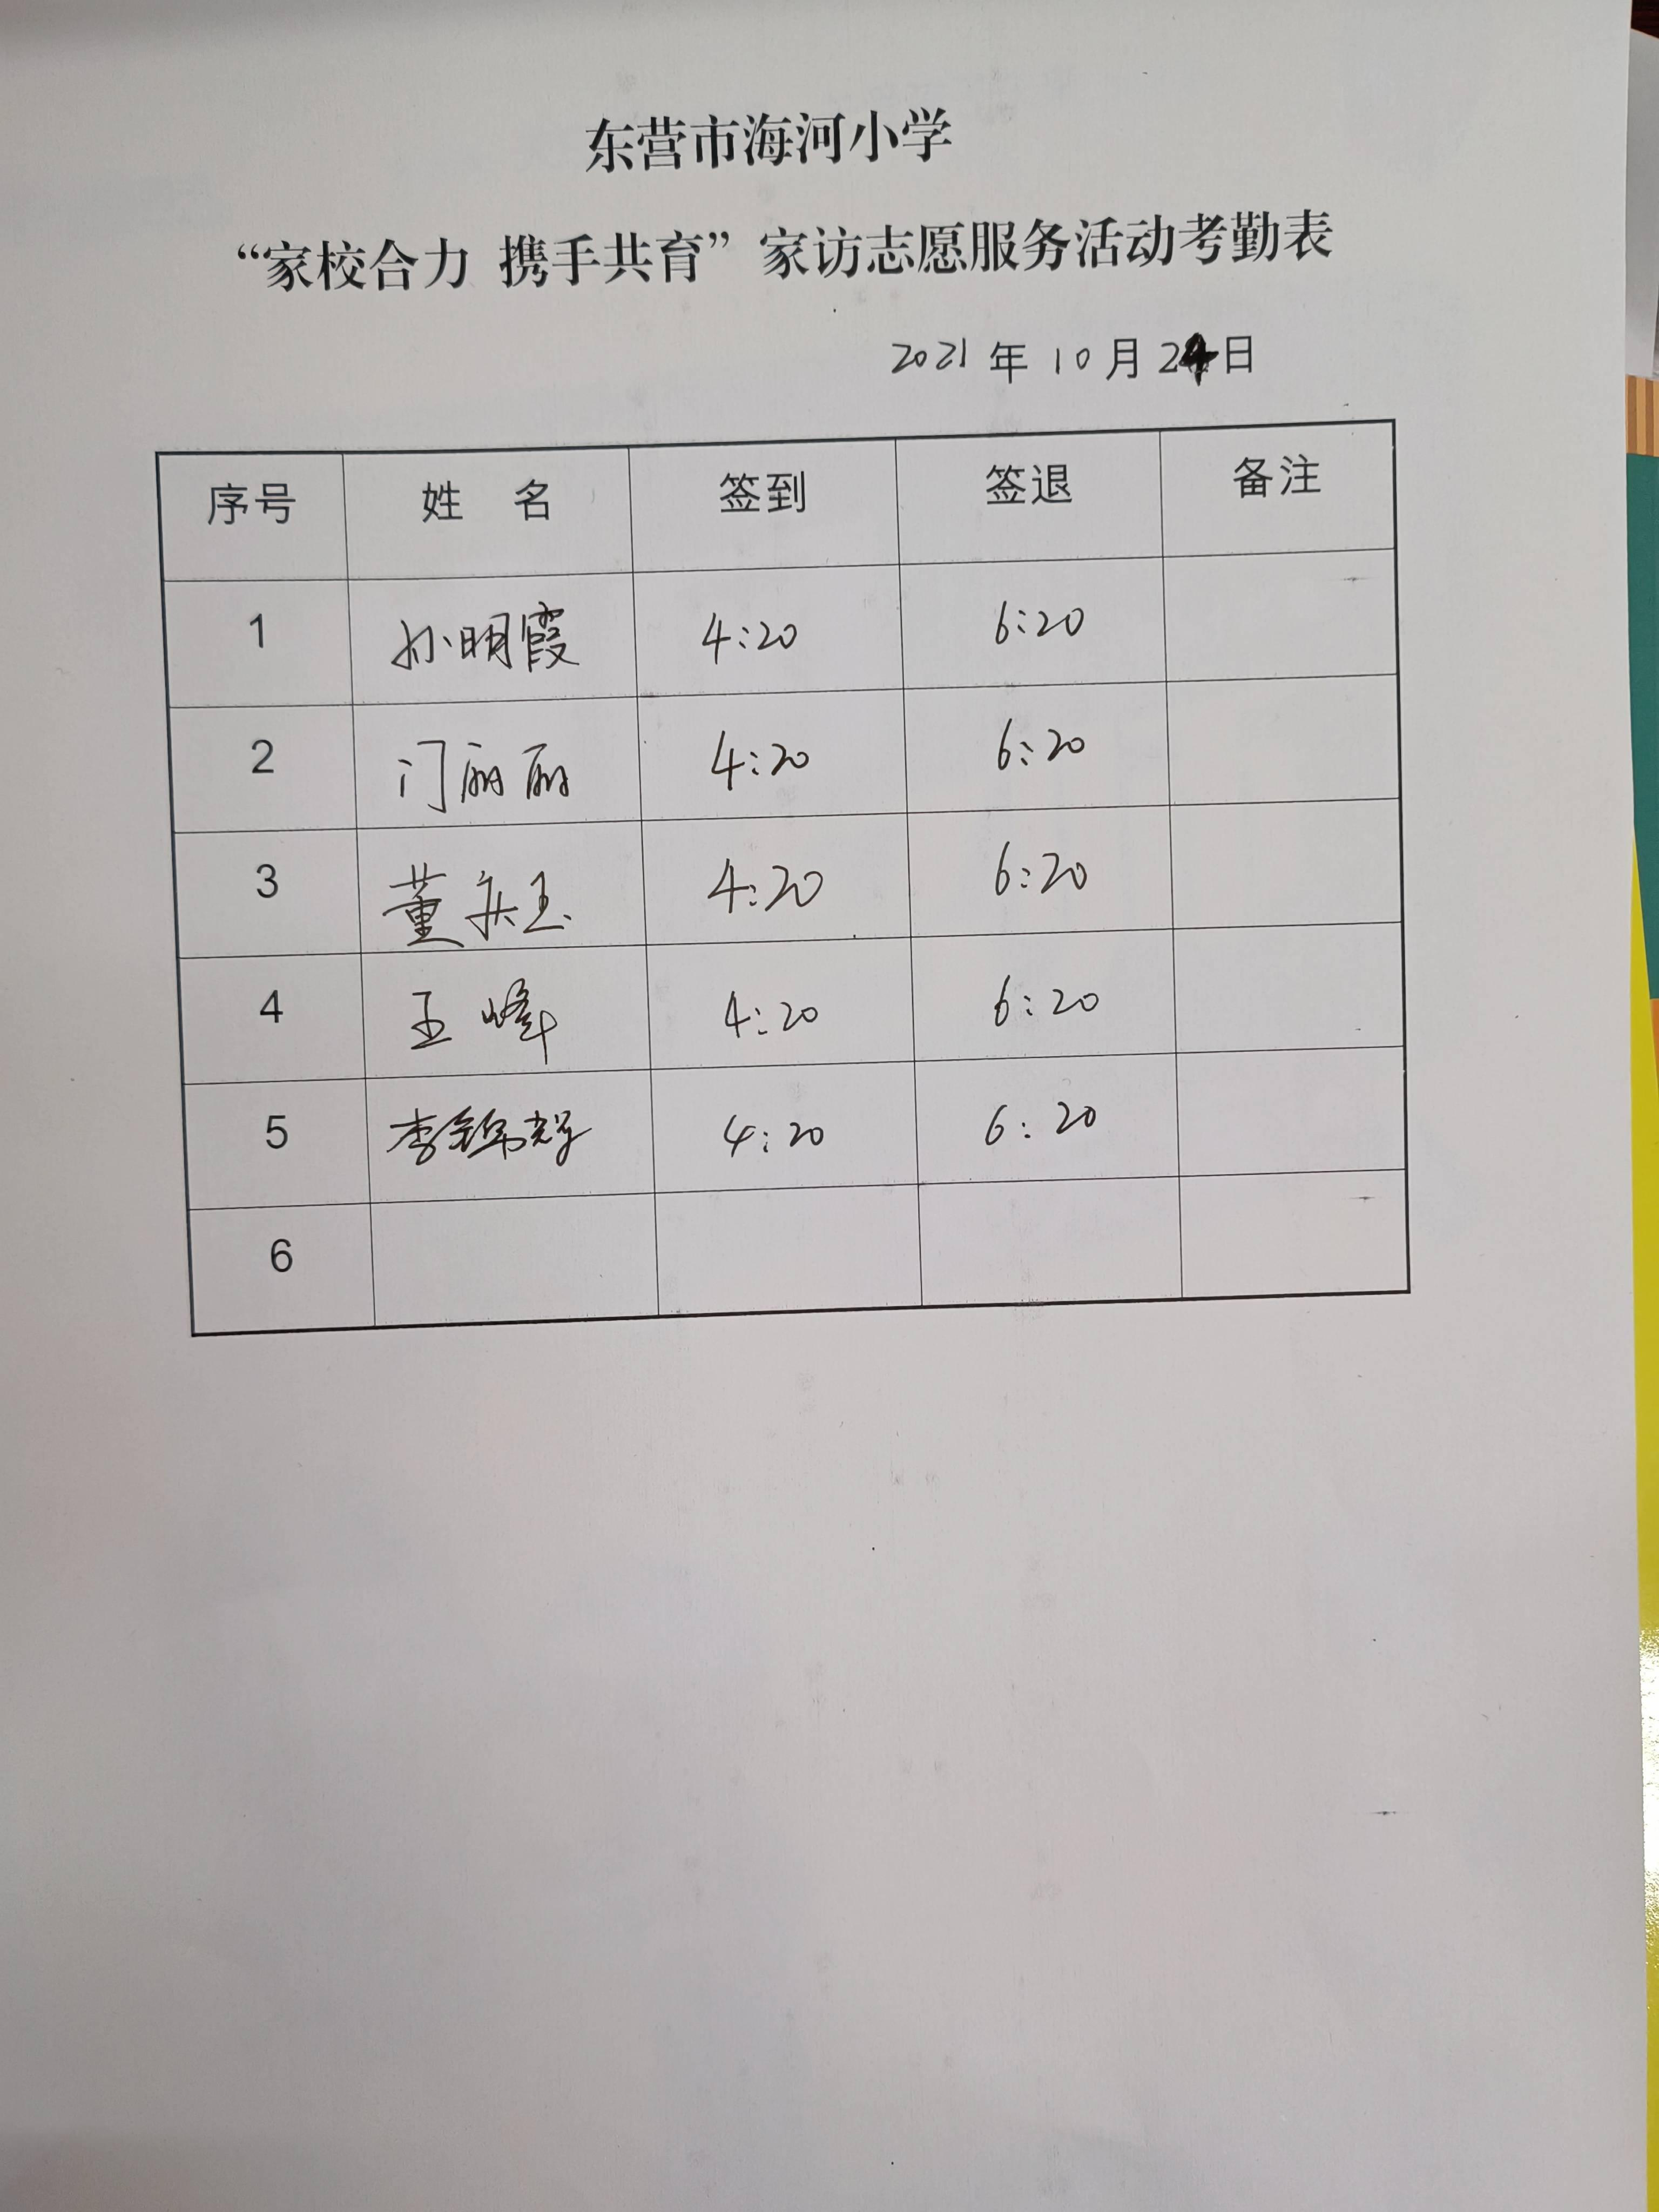 东营市海河小学
“家校合力 携手共育”家访志愿服务活动考勤表
2021年10月24日
序号 姓 名 签到 签退 备注
1 孙明霞 4:20 6:20
2 门丽丽 4:20 6:20
3 董庆玉 4:20 6:20
4 王峰 4:20 6:20
5 李锦辉 4:20 6:20
6